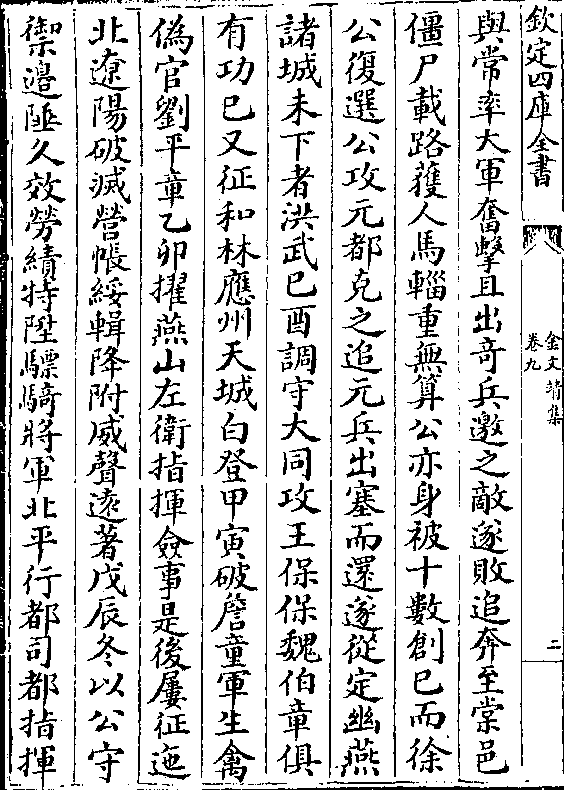 欽定四庫全書
金文靖集
卷九
二
與常率大軍奮擊且出竒兵邀之敵遂敗追奔至棠邑
僵尸載路獲人馬輜重無算公亦身被十數創已而徐
公復選公攻元都克之追元兵出塞而還遂從定幽燕
諸城未下者洪武己酉調守大同攻王保保魏伯章俱
有功已又征和林應州天城白登甲寅破詹童軍生禽
偽官劉平章乙卯擢燕山左衛指揮僉事是後屢征迤
北遼陽破滅營帳綏輯降附威聲遠著戊辰冬以公守
禦邊陲久效勞績特陞驃騎將軍北平行都司都指揮